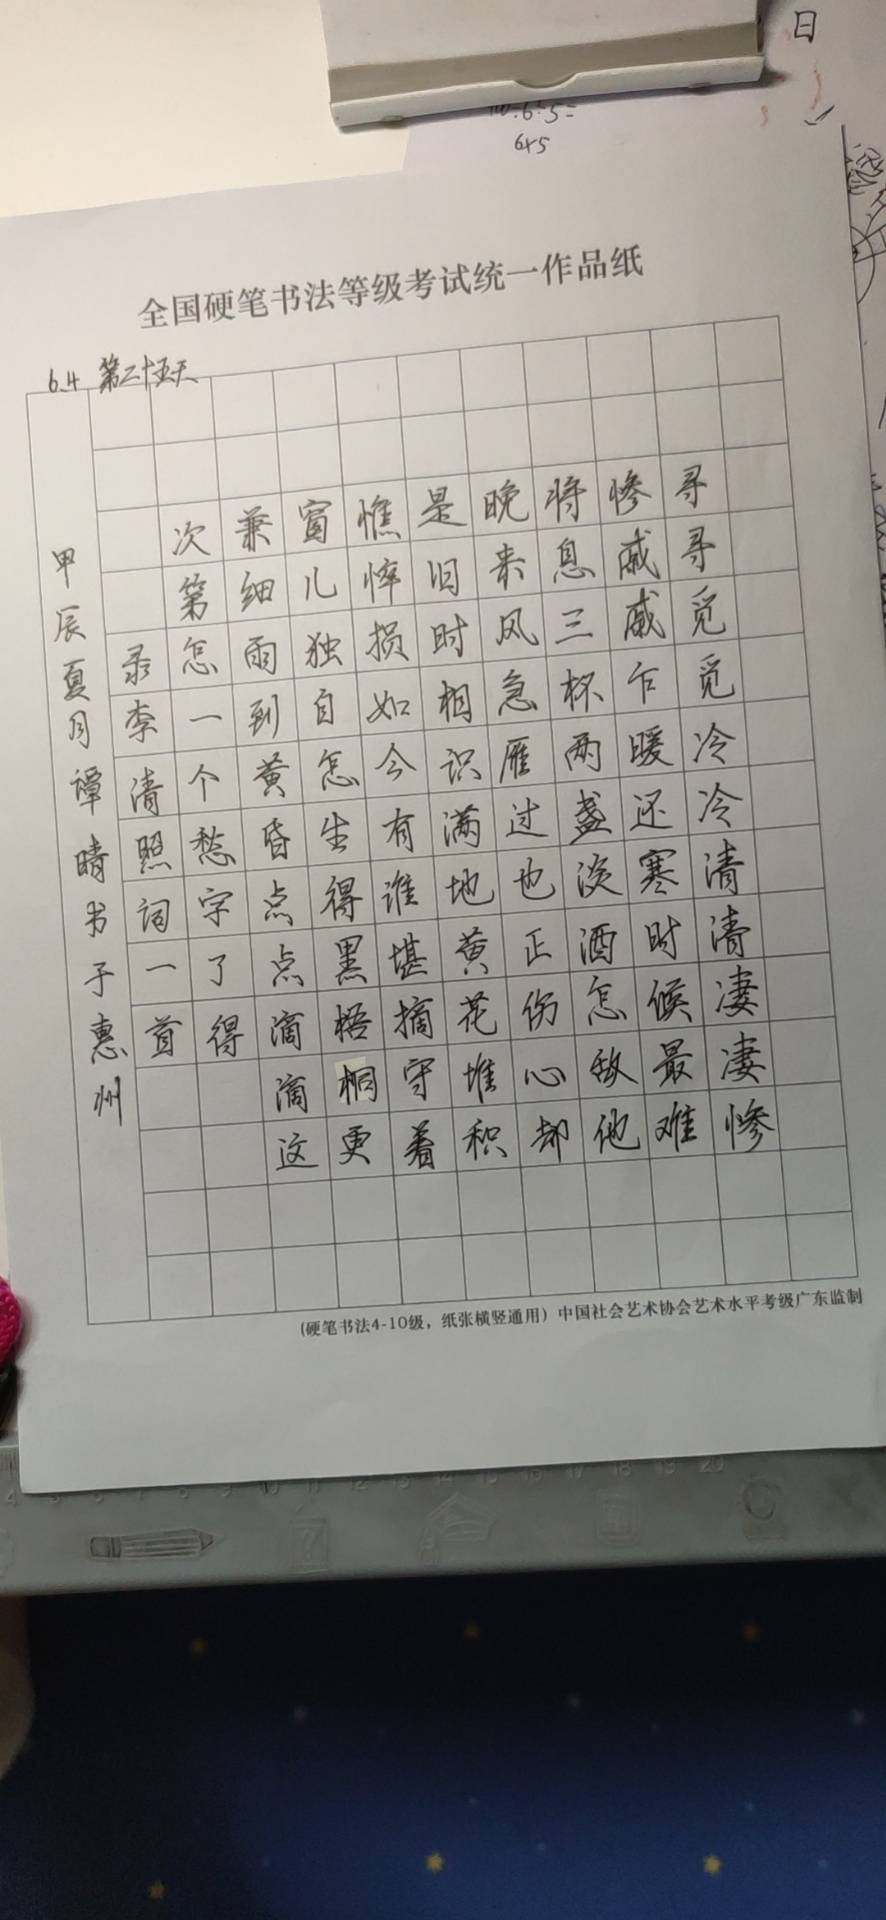 日
全国硬笔书法等级考试统一作品纸
6.4 第二十五天
寻寻觅觅冷冷清清凄凄惨
惨戚戚乍暖还寒时候最难
将息三杯两盏淡酒怎敌他
晚来风急雁过也正伤心却
是旧时相识满地黄花堆积
憔悴损如今有谁堪摘守着
窗儿独自怎生得黑梧桐更
兼细雨到黄昏点点滴滴这
次第怎一个愁字了得
录李清照词一首
甲辰夏月谭晴书于惠州
(硬笔书法4-10级，纸张横竖通用) 中国社会艺术协会艺术水平考级广东监制